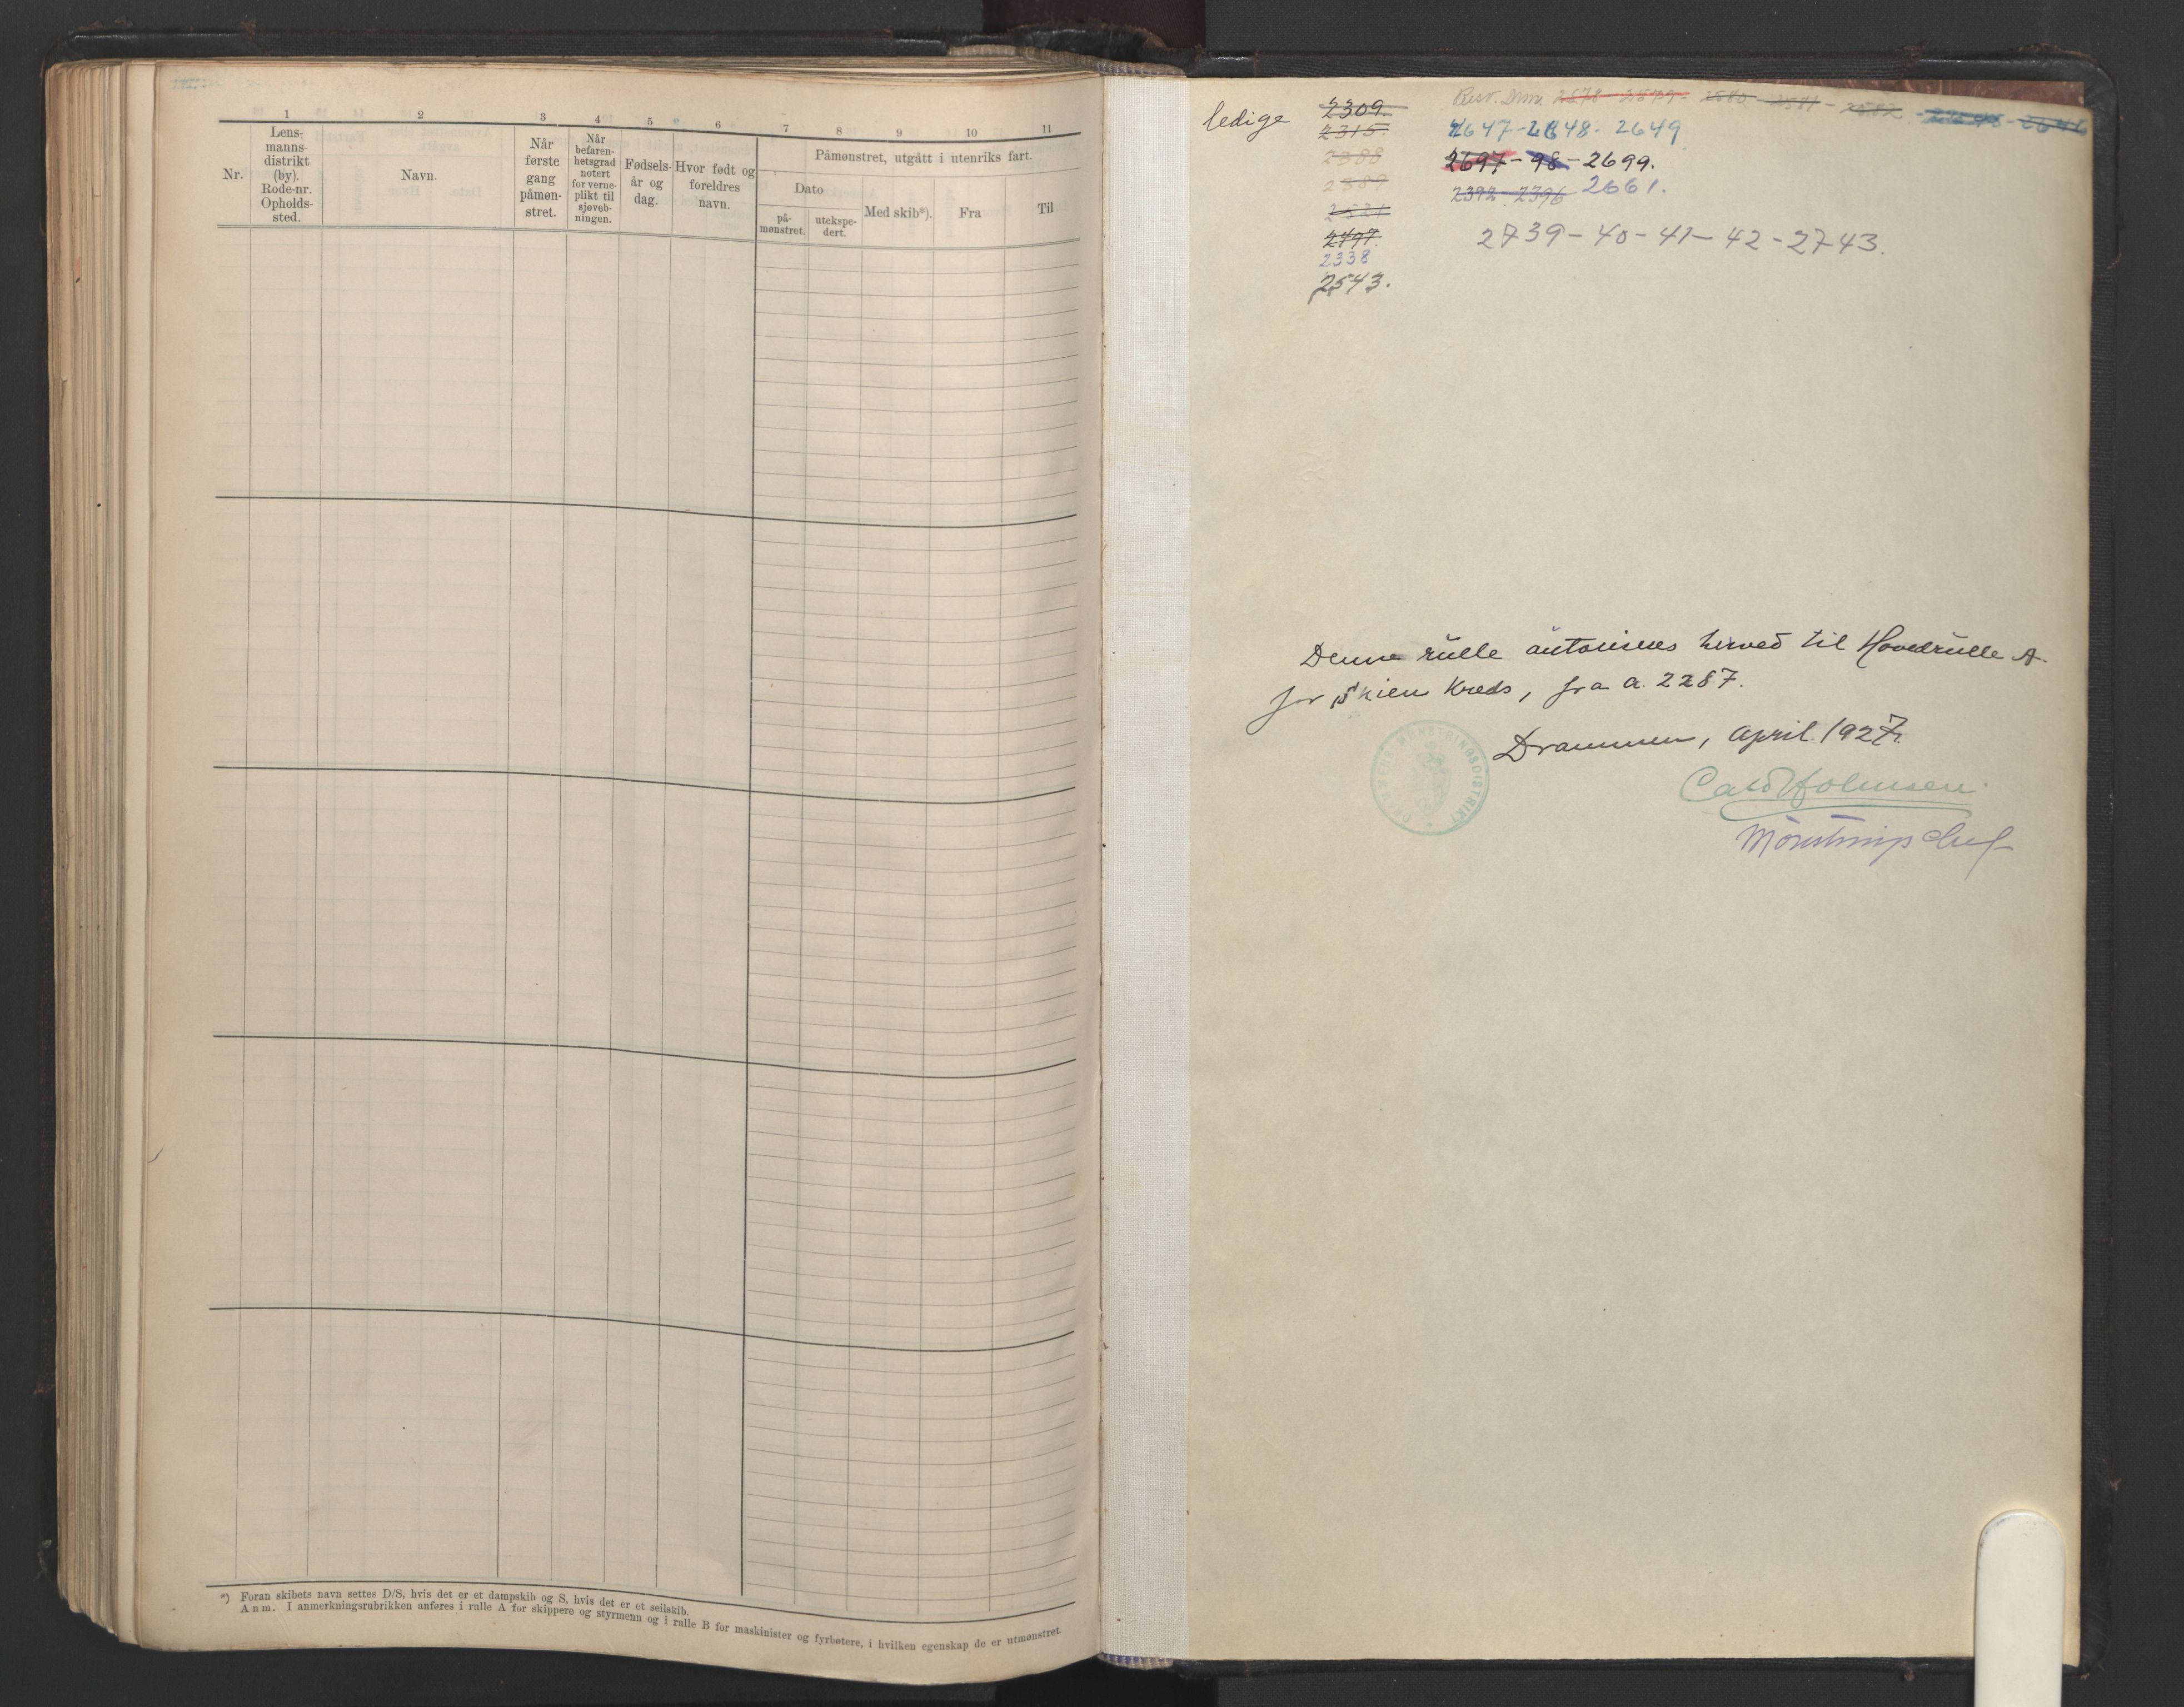 1 2 3 4 5 6 7 8 9 10 11
Nr.
Lens-
manns-
distrikt
(by).
Rode-nr.
Opholds-
sted.
Navn.
Når
første
gang
påmøn-
stret.
Når
befaren-
hetsgrad
notert
for verne-
plikt til
sjøveb-
ningen.
Fødsels-
år og
dag.
Hvor født og
foreldres
navn.
Påmønstret, utgått i utenriks fart.
Dato
på-
mønstret.
utekspe-
dert.
Med skib*).
Fra
Til
*) Foran skibets navn settes D/S, hvis det er et dampskib og S, hvis det er et seilskib.
Anm. I anmerkningsrubrikken anføres i rulle A for skippere og styrmenn og i rulle B for maskinister og fyrbøtere, i hvilken egenskap de er utmønstret.
ledige
2309.
2315.
2388
2389
2521
2497.
2338
2543.
Resv. Drm. 2678 - 2579 - 2580 - 2581 - 2582
2647-2648-2649
2697-98-2699.
2392-2396 2661.
2739-40-41-42-2743.
Denne rulle autoriseres herved til Hovedrulle A.
for Skien Kreds, fra a. 2287.
Drammen, April 1927.
MØNSTRINGSDISTRIKT
Holmsen
Mönstringschef